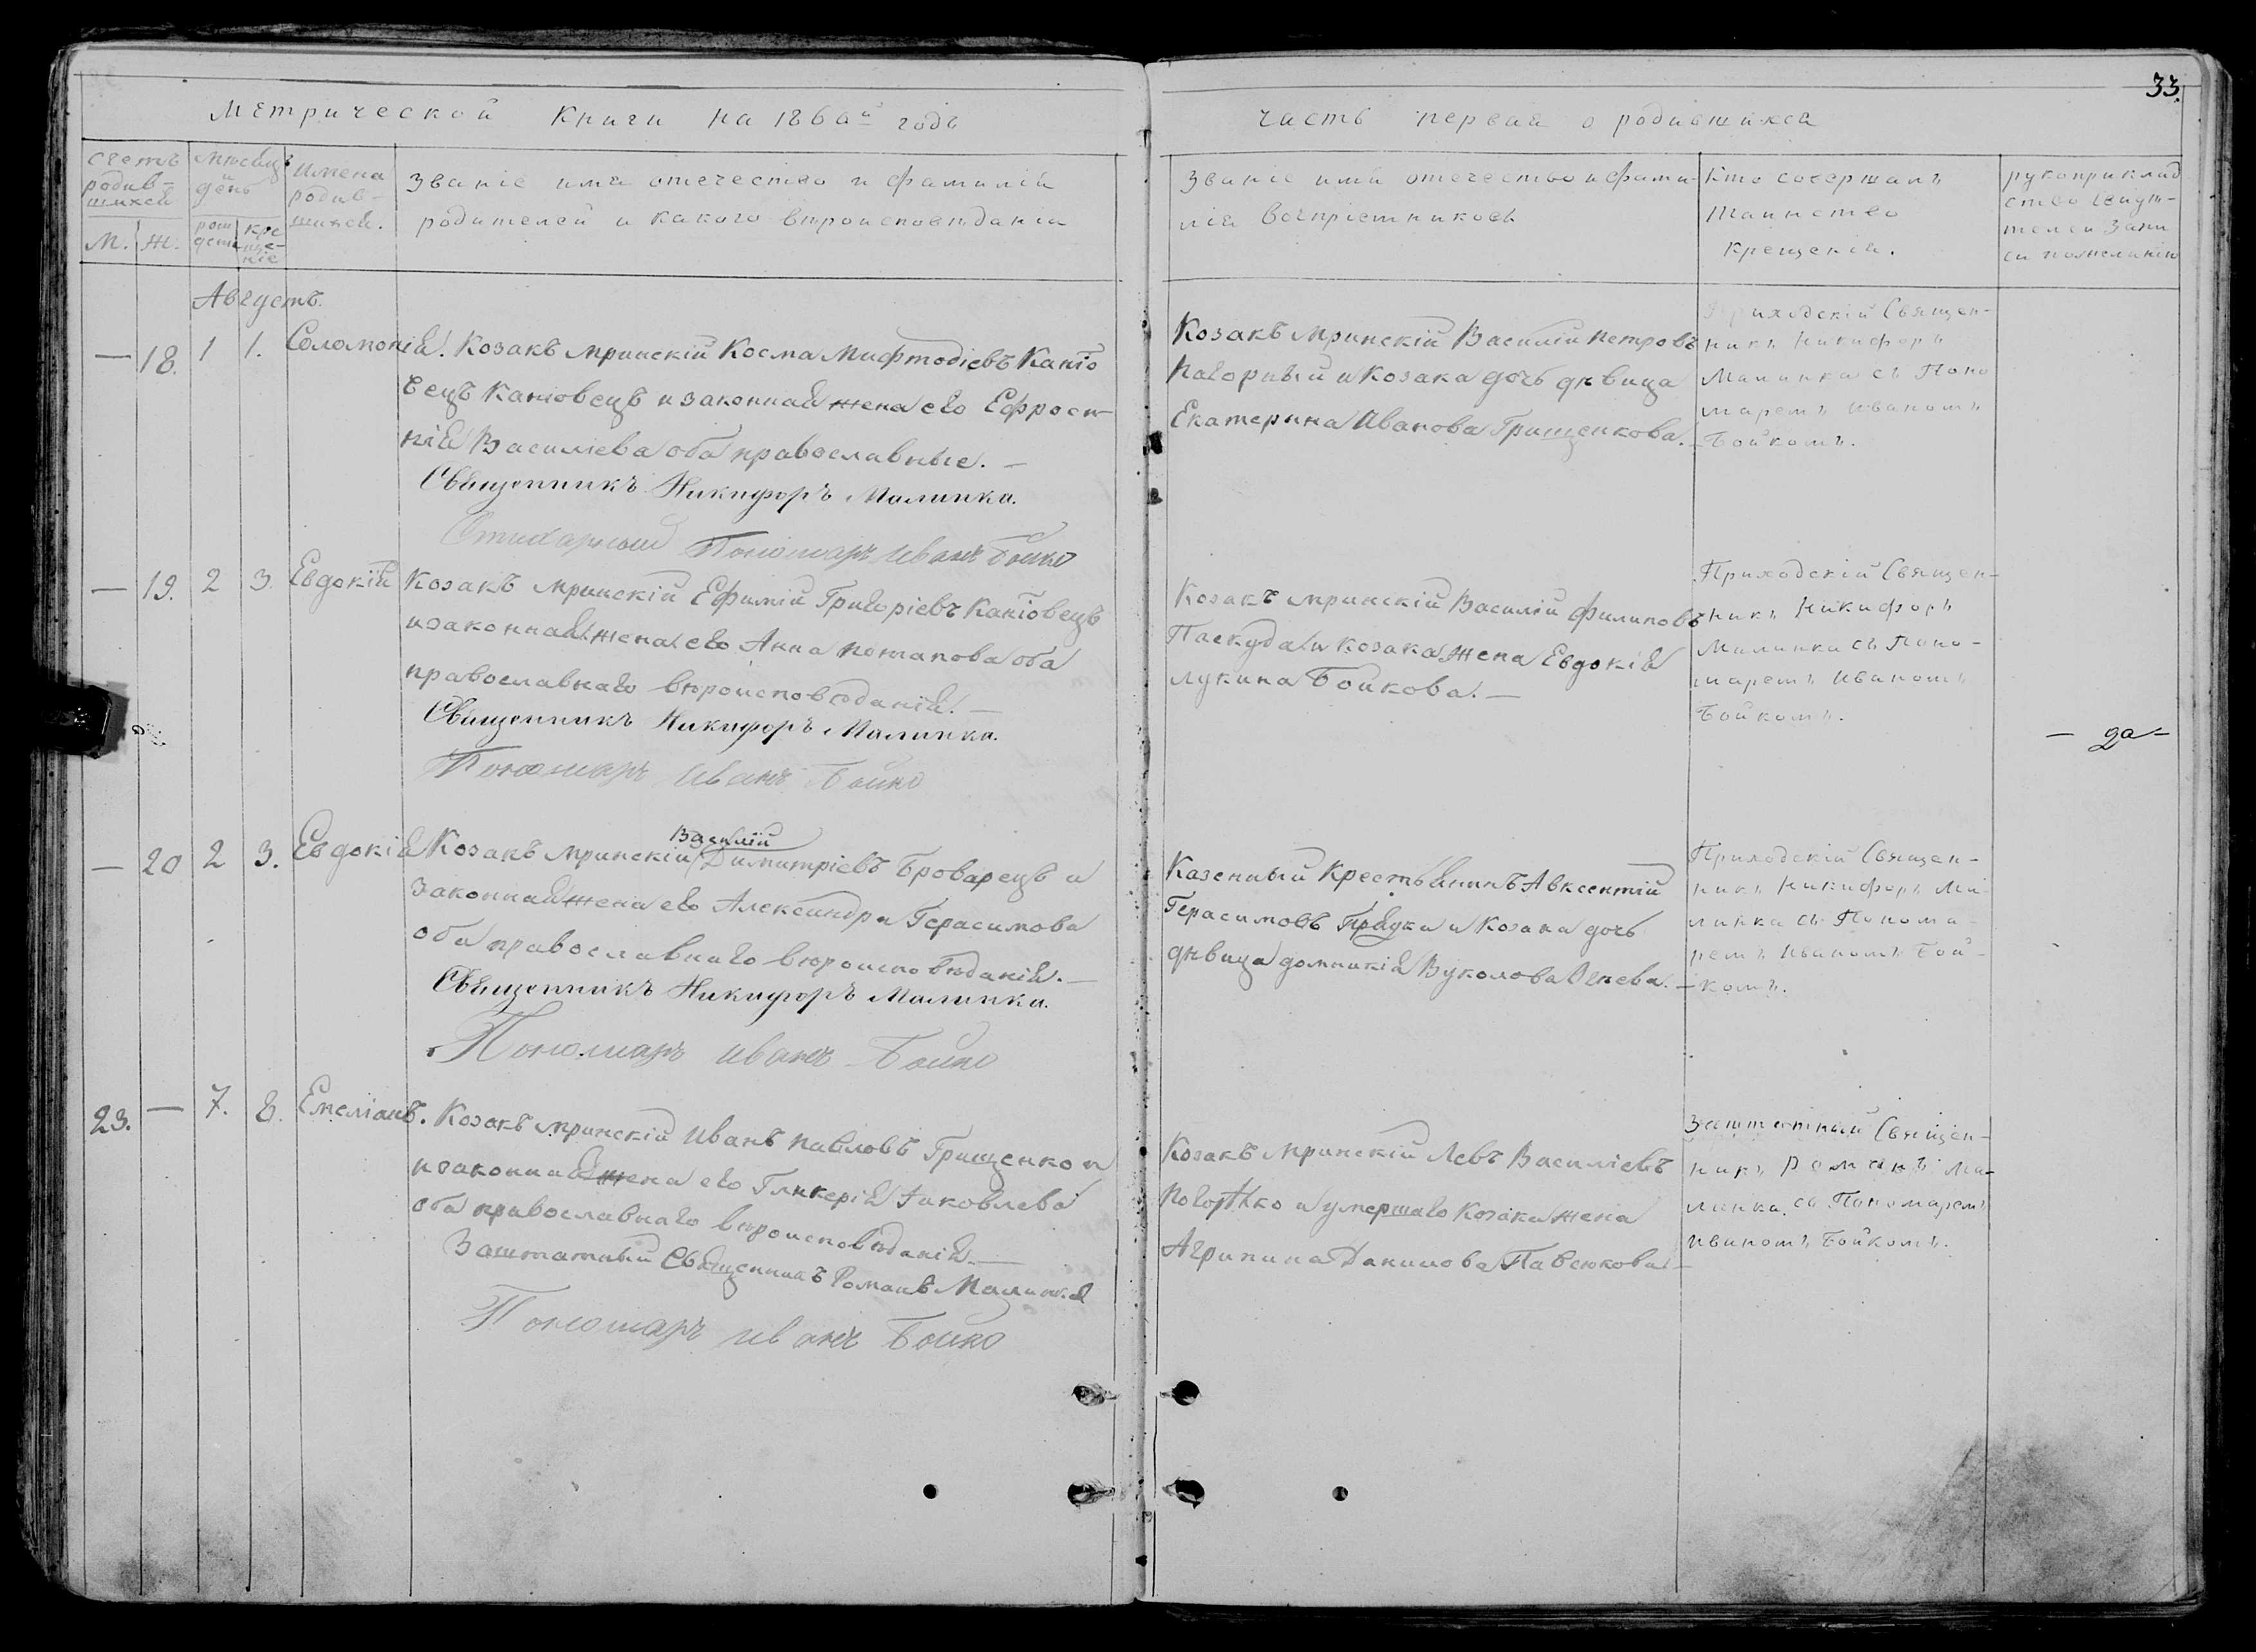 33.
Метрической Книги на 1860й годъ
часть первая о родившихся
счетъ родив-шихся
М. Ж.
Мѣсяцъ и день
рождения крещение
Имена родив-шихся.
Званіе имя отечество и фамилія
родителей и какого вѣроисповѣданія
Званіе имя отечество и фами-
лія воспріемниковъ
Кто совершалъ
таинство
крещенія.
рукоприклад
ство свидѣ-
телей запи
си по желанію
Августъ.
— 18. 1 1. Соломонія. Козакъ мринскій Косма Мифтодіевъ
вецъ Каніовецъ и законная жена его Ефроси-
нія Василіева оба православные. —
Священникъ Никифоръ Малинка.
Стихарный Пономарь Иванъ Бойко
Козакъ мринскій Василій петровъ
Нагорный и Козака дочь дѣвица
Екатерина Иванова Грищенкова. —
Приходскій Священ-
никъ Никифоръ
Малинка съ Поно
маремъ Иваномъ
Бойкомъ.
— 19. 2 3. Евдокія Козакъ мринскій Ефимій Григоріевъ Каніовецъ
и законная жена его Анна потапова оба
православнаго вѣроисповѣданія. —
Священникъ Никифоръ Малинка.
Пономарь Иванъ Бойко
Козакъ мринскій Василій филиповъ
Паскуда и козака жена Евдокія
лукина Бойкова. —
Приходскій Священ-
никъ Никифоръ
Малинка съ Поно-
маремъ Иваномъ
Бойкомъ.
— 20 2 3. Евдокія Козакъ мринскій Василій Димитріевъ Броварецъ и
законная жена его Александра Герасимова
оба православнаго вѣроисповѣданія. —
Священникъ Никифоръ Малинка.
Пономарь Иванъ Бойко
Казенный Крестьянинъ Авксентій
Герасимовъ и Козака дочь
дѣвица домникія Вуколова —
Приходскій Священ-
никъ Никифоръ Ма
линка съ Понома-
ремъ Иваномъ Бой-
комъ.
23. — 7. 8. Емеліанъ. Козакъ мринскій Иванъ павловъ Грищенко и
и законная жена его Гликерія Іаковлева
оба православнаго вѣроисповѣданія —
Заштатный Священникъ Романъ Малинка
Пономарь Иванъ Бойко
Козакъ мринскій Левъ Василіевъ
и умершаго Козака жена
Агрипина Данилова Павсюкова —
Заштатный Священ-
никъ Романъ Ма-
линка съ Пономаремъ
Иваномъ Бойкомъ.